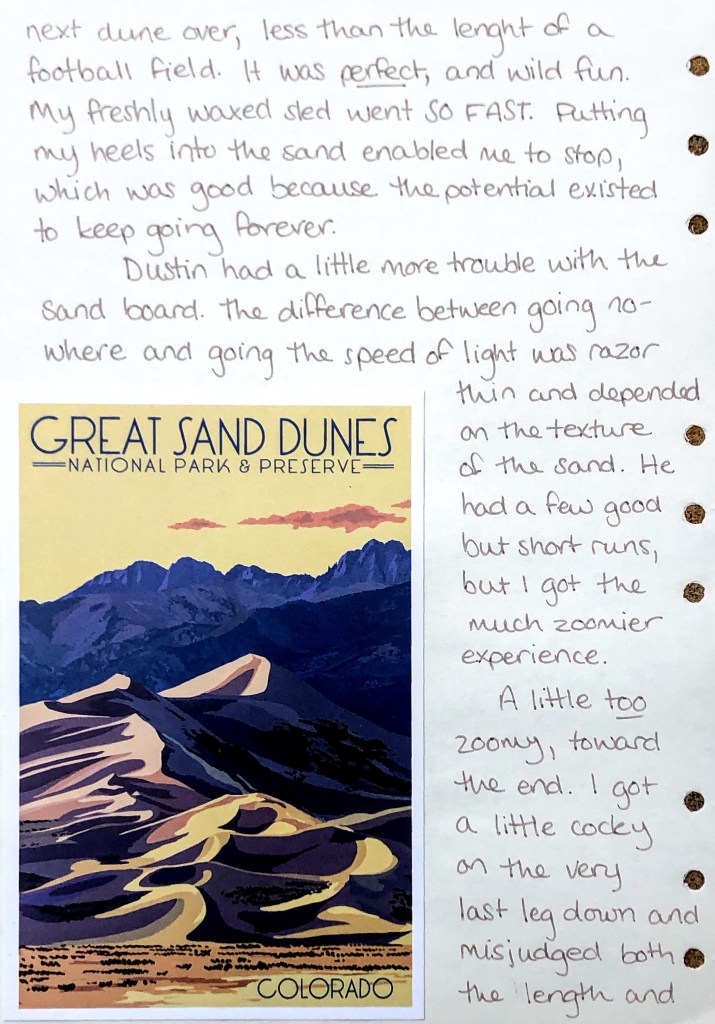 next dune over, less than the lenght of a
football field. It was perfect, and wild fun.
My freshly waxed sled went SO FAST. Putting
my heels into the sand enabled me to stop,
which was good because the potential existed
to keep going forever.
Dustin had a little more trouble with the
sand board. The difference between going no-
where and going the speed of light was razor
thin and depended
on the texture
of the sand. He
had a few good
but short runs,
but I got the
much zoomier
experience.
A little too
zoomy, toward
the end. I got
a little cocky
on the very
last leg down and
misjudged both
the length and
GREAT SAND DUNES
NATIONAL PARK & PRESERVE
COLORADO